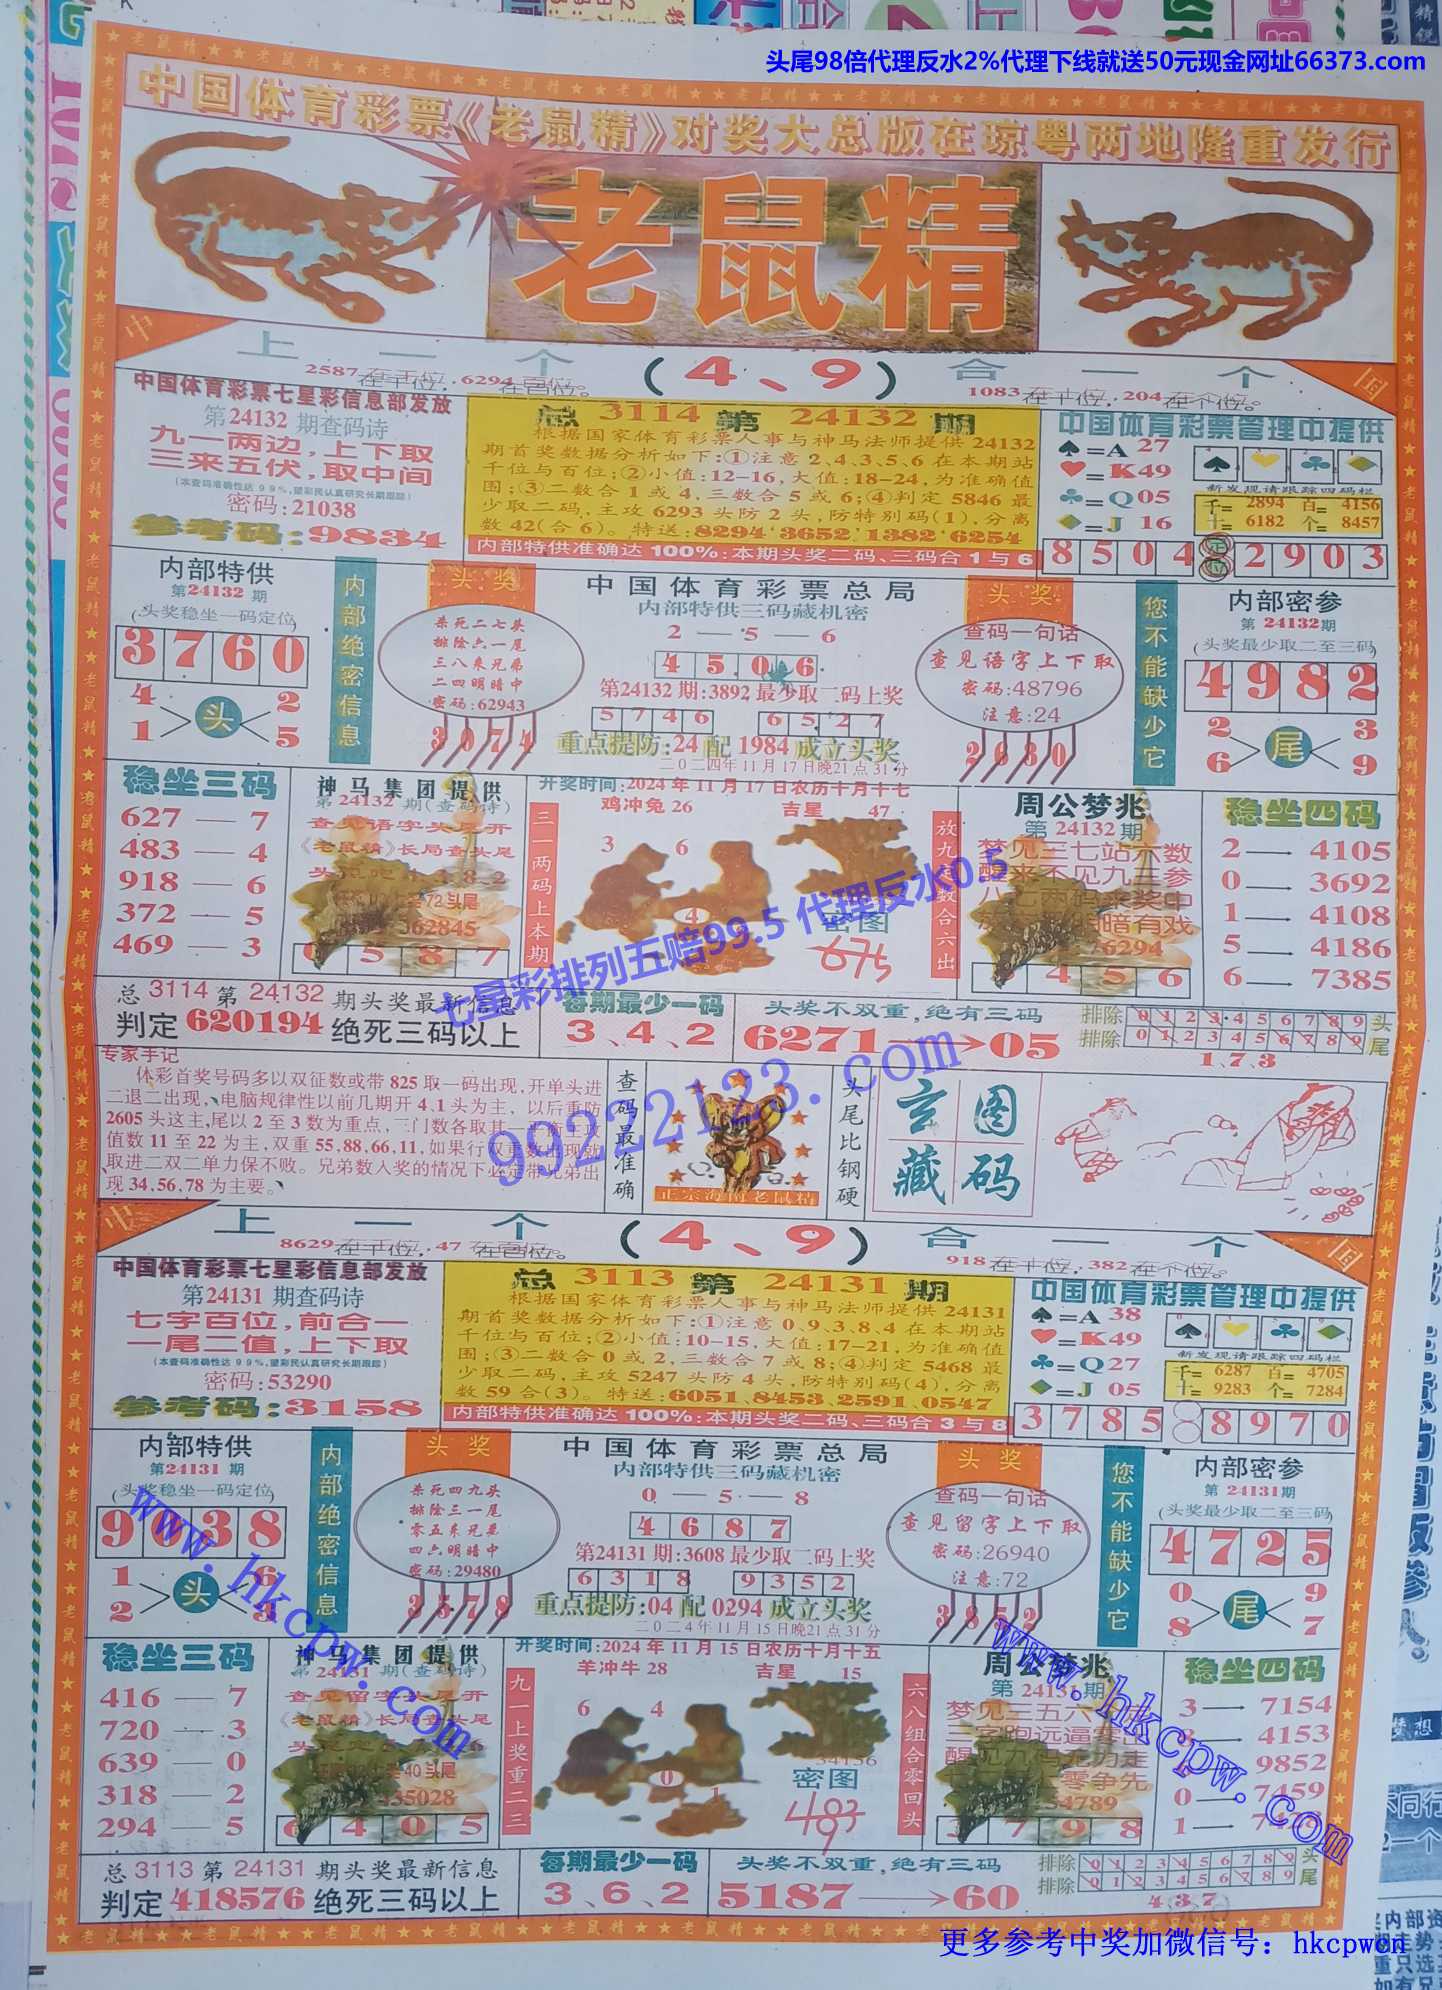 头尾98倍代理反水2%代理下线就送50元现金网址66373.com
中国体育彩票《老鼠精》对奖大总版在琼粤两地隆重发行
老鼠精
中 上一个 (4、9) 合一个 国
2587在千位,6294百位。
1083在十位,204在个位。
中国体育彩票七星彩信息部发放
第24132期查码诗
九一两边,上下取
三来五伏,取中间
(本查码准确性达99%,望彩民认真研究长期跟踪)
密码:21038
参考码:9834
总3114第24132期
根据国家体育彩票人事与神马法师提供24132
期首奖数据分析如下:①注意2、4、3、5、6在本期站
千位与百位;②小值:12-16,大值:18-24,为准确值
围;③二数合1或4,三数合5或6;④判定5846最
少取二码,主攻6293头防2头,防特别码(1),分离
数42(合6)。特送:8294*3652*1382*6254
内部特供准确达100%:本期头奖二码、三码合1与6
中国体育彩票管理中提供
♠=A 27
♥=K49
♣=Q05
♦=J 16
新发现请跟踪四码栏
千=2894 百=4156
十=6182 个=8457
8504 定位 2903
内部特供
第24132期
(头奖稳坐一码定位)
3760
4 1 头 2 5
内部绝密信息
头奖
杀死二七头
排除六一尾
三八来兄弟
二四明暗中
密码:62943
3074
中国体育彩票总局
内部特供三码藏机密
2—5—6
4506
第24132期:3892最少取二码上奖
5746 6527
重点提防:24配1984成立头奖
二0二四年11月17日晚21点31分
头奖
查码一句话
查见语字上下取
密码:48796
注意:24
2680
您不能缺少它
内部密参
第24132期
(头奖最少取二至三码)
4982
2 6 尾 3 9
稳坐三码
627—7
483—4
918—6
372—5
469—3
神马集团提供
第24132期(查码诗)
查见语字头尾开
《老鼠精》长局查头尾
72头尾
62845
587
三一两码上本期
开奖时间:2024年11月17日农历十月十七
鸡冲兔26 吉星 47
3 6
4
密图
675
放九定数合六出
周公梦兆
第24132期
梦见三七站六数
醒来不见九三参
八七两码来奖中
暗有戏
6294
456
稳坐四码
2→4105
0→3692
1→4108
5→4186
6→7385
总3114第24132期头奖最新信息
判定620194绝死三码以上
每期最少一码
3、4、2
头奖不双重,绝有三码
6271→05
排除0123456789头
排除0123456789尾
1、7、3
专家手记
体彩首奖号码多以双征数或带825取一码出现,开单头进
二退二出现,电脑规律性以前几期开4、1头为主,以后重防
2605头这主,尾以2至3数为重点,三门数各取其一
值数11至22为主,双重55,88,66,11,如果行双更数出现就
取进二双二单力保不败。兄弟数入奖的情况下必定带兄弟出
现34,56,78为主要。
查码最准确
正宗海南老鼠精
头尾比钢硬
玄图藏码
七星彩排列五赔99.5 代理反水0.5
99222123.com
中 上一个 (4、9) 合一个 国
8629在千位,47在百位。
918在十位,382在个位。
中国体育彩票七星彩信息部发放
第24131期查码诗
七字百位,前合一
一尾二值,上下取
(本查码准确性达99%,望彩民认真研究长期跟踪)
密码:53290
参考码:3158
总3113第24131期
根据国家体育彩票人事与神马法师提供24131
期首奖数据分析如下:①注意0、9、3、8、4在本期站
千位与百位;②小值:10-15,大值:17-21,为准确值
围;③二数合0或2,三数合7或8;④判定5468最
少取二码,主攻5247头防4头,防特别码(4),分离
数59合(3)。特送:6051*8453*2591*0547
内部特供准确达100%:本期头奖二码、三码合3与8
中国体育彩票管理中提供
♠=A 38
♥=K49
♣=Q27
♦=J 05
新发现请跟踪四码栏
千=6287 百=4705
十=9283 个=7284
3785 8970
内部特供
第24131期
(头奖稳坐一码定位)
9038
1 2 头 6
内部绝密信息
头奖
杀死四九头
排除三一尾
零五来兄弟
四六明暗中
密码:29480
3578
中国体育彩票总局
内部特供三码藏机密
0—5—8
4687
第24131期:3608最少取二码上奖
6318 9352
重点提防:04配0294成立头奖
二0二4年11月15日晚21点31分
头奖
查码一句话
查见留字上下取
密码:26940
注意:72
3852
您不能缺少它
内部密参
第24131期
(头奖最少取二至三码)
4725
0 8 尾 9 7
稳坐三码
416—7
720—3
639—0
318—2
294—5
神马集团提供
第24131期(查码诗)
查见留字头尾开
《老鼠精》长局查头尾
40头尾
35028
6405
九一上奖重二三
开奖时间:2024年11月15日农历十月十五
羊冲牛28 吉星 15
6 4
0 1
34156
密图
493
六八组合零回头
周公梦兆
第24131期
梦见三五六
二字跑远逼
醒见九码
零争先
54789
3798
稳坐四码
3→7154
4153
9852
0→7459
1→
总3113第24131期头奖最新信息
判定418576绝死三码以上
每期最少一码
3、6、2
头奖不双重,绝有三码
5187→60
排除0123456789头
排除0123456789尾
4 3 7
www.hkcpw.com
www.hkcpw.com
更多参考中奖加微信号:hkcpwcn